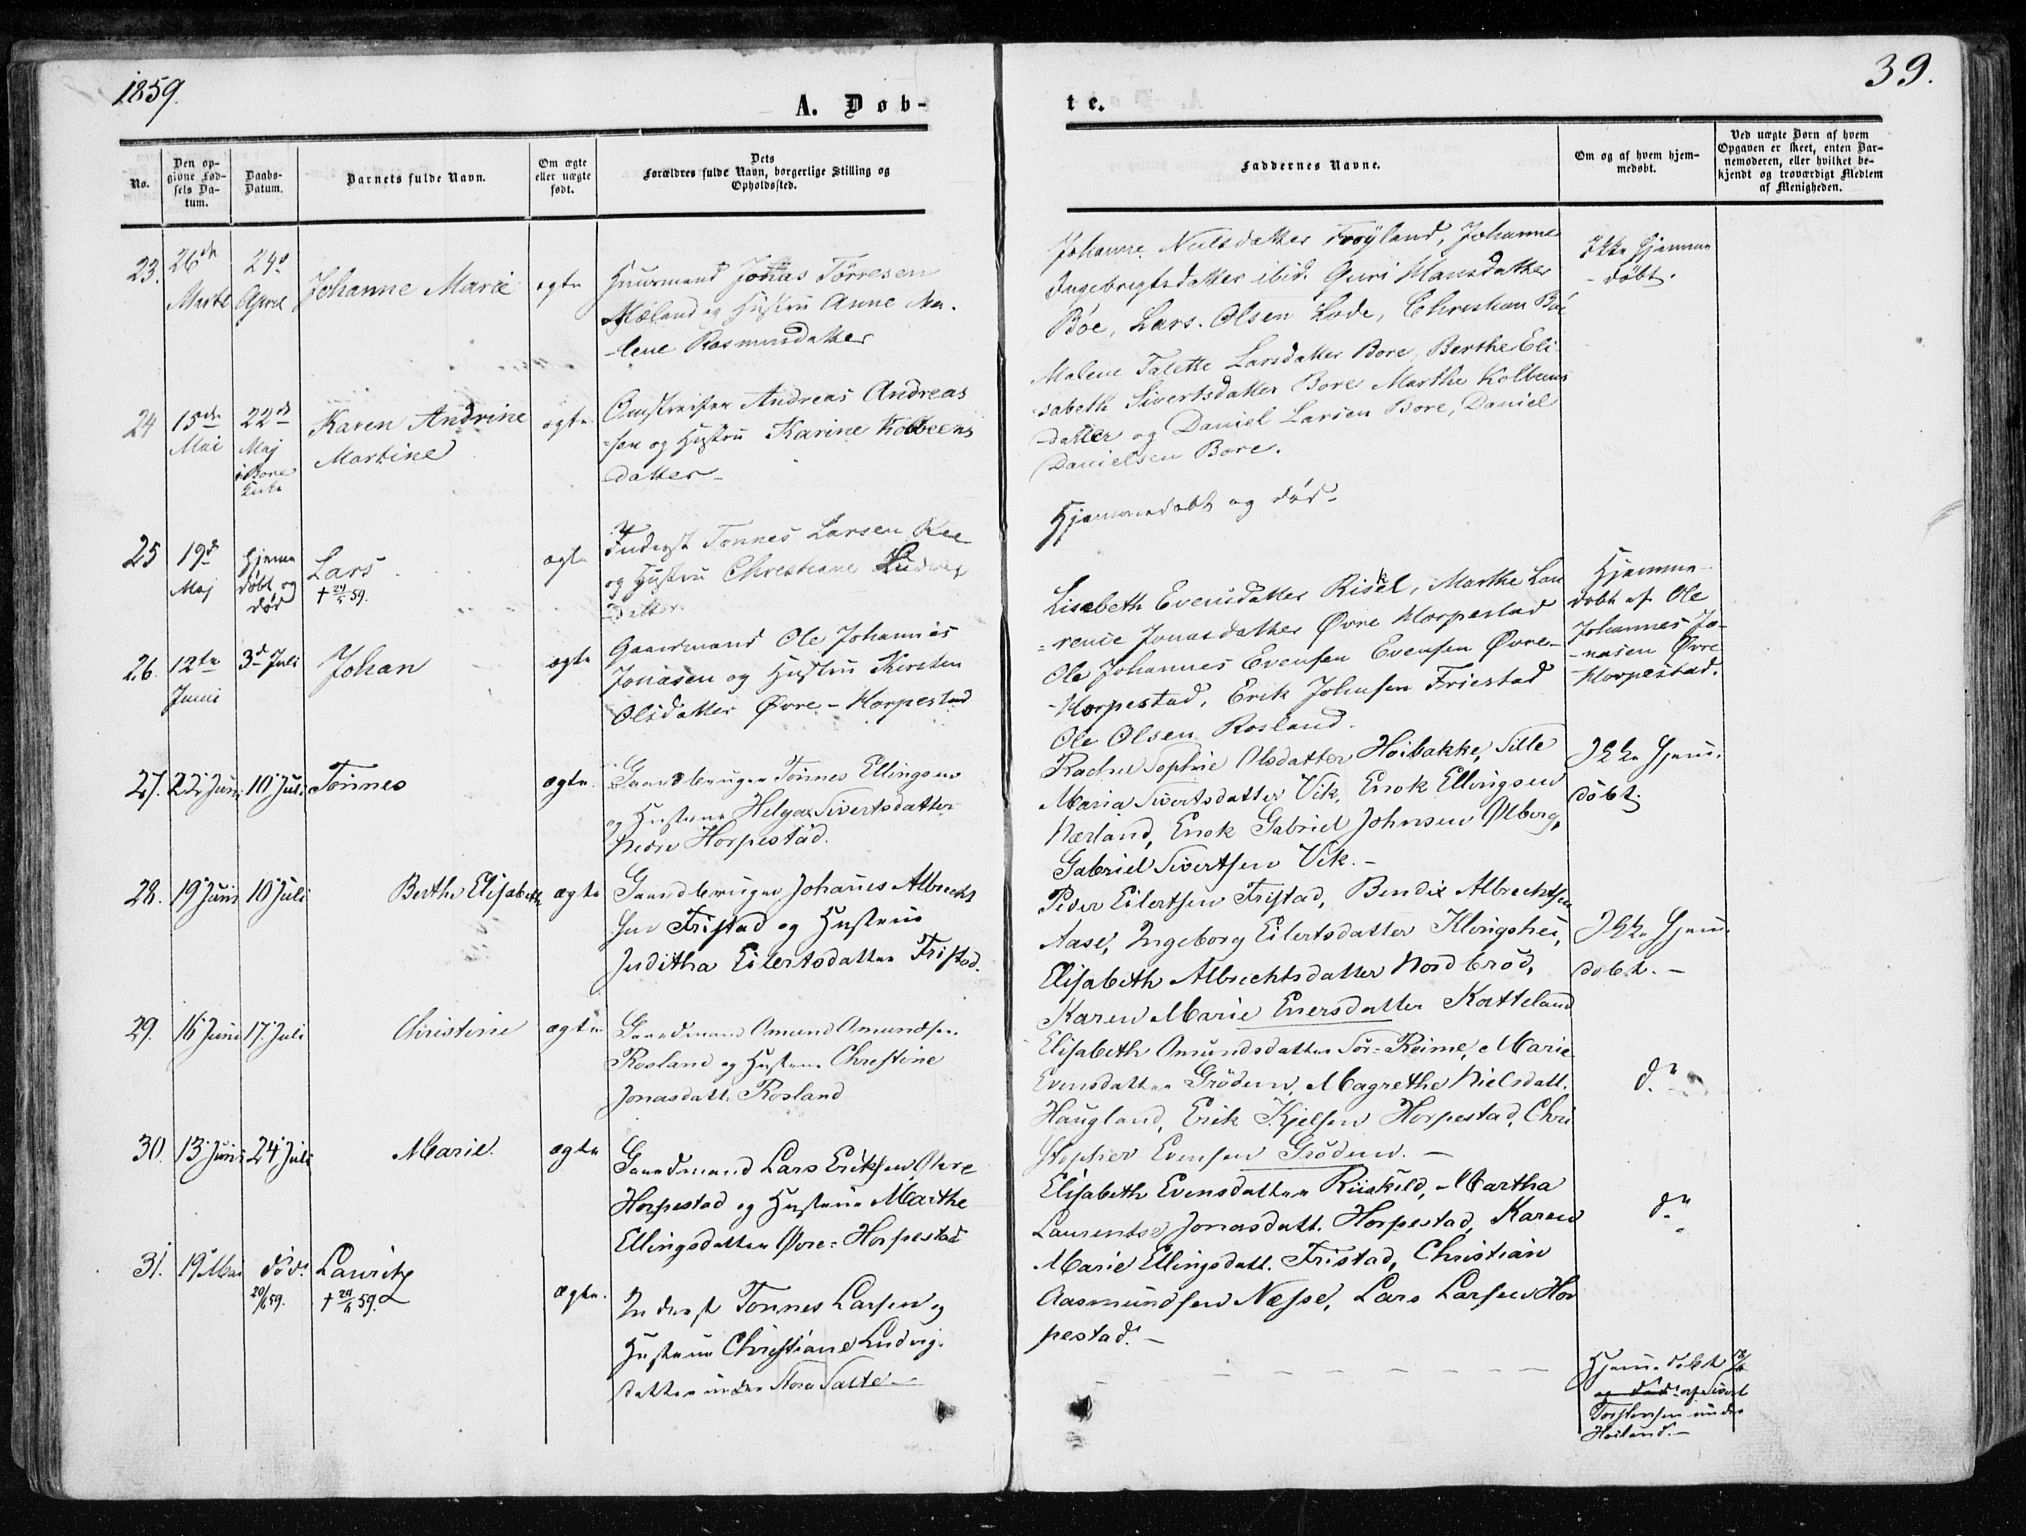 1859.
39.
A. Døb-
te.
No.
Den op-
givne Fød-
sels Da-
tum.
Daabs-
Datum.
Barnets fulde Navn.
Om ægte
eller uægte
født.
Dets
Forældres fulde Navn, borgerlige Stilling og
Opholdssted.
Faddernes Navne.
Om og af hvem hjem-
medøbt.
Ved uægte Børn af hvem
Opgaven er skeet, enten Bar-
nemoderen, eller hvilket be-
kjendt og troværdigt Medlem
af Menigheden.
23.
26de
Marts
24d
April
Johanne Marie
ægte
Huusmand Jonas Tørresen
Mæland og Hustru Anne Ma-
-lene Rasmusdatter
Johanne Nielsdatter Frøyland, Johanne
Ingebregtsdatter ibid. Guri Hansdatter
Bøe, Lars Olsen Lode, Christian Bøe
Ikke hjemme
-døbt.
24
15de
Mai
22de
Maj
i Bore
Kirke
Karen Andrine
Martine
ægte
Andreas Andreas
-sen og Hustru Karine Kolbeens
datter-
Malene Talette Larsdatter Bore, Berthe Eli-
sabeth Sivertsdatter Bore Marthe Kolbeens
-datter og Daniel Larsen Bore, Daniel
Danielsen Bore.
25
19de
Maj
hjemme
døbt og
død
Lars
+ 59.
ægte
Inderst Tønnes Larsen
og Hustru Christiane Ludvig
datter
Hjemmedøbt og død-
26.
12te
Juni
3d Juli
Johan
ægte
Gaardmand Ole Johannes
Jonasen og Hustru Kirsten
Olsdatter Øvre-Horpestad
Lisabeth Evensdatter Riskel, Marthe Lau
=rense Jonasdatter Øvre Horpestad
Ole Johannes Evensen Evensen Øvre-
-Horpestad, Erik Johnsen Friestad
Ole Olsen Rosland.
Hjemme-
døbt af Ole
Johannes Jo-
-nasen Øvre
-Horpestad.
27.
22 Juni
10 Juli
Tønnes
ægte.
Gaardbruger Tønnes Ellingsen
og Hustrue Helga Sivertsdatter
Nedre Horpestad.
Rachel Sophie Olsdatter Høibakke, Sille
Maria Sivertsdatter Vik, Enok Ellingsen
Nærland, Enok Gabriel Johnsen Ølberg,
Gabriel Sivertsen Vik.-
Ikke hjem.
døbt.
28.
19 Juni
10 Juli
Berthe Elisabeth
ægte
Gaardbruger Johanes Albrecht
sen Fristad og Hustrue
Juditha Eilertsdatter Fristad.
Peder Eilertsen Fristad, Bendix Albrechtsen
Aase, Ingeborg Eilertsdatter Klingshei,
Elisabeth Albrechtsdatter Nordbrød,
Karen Marie Enersdatter Katteland
Ikke hjem.
døbt.-
29.
16 Juni
17. Juli
Christine
ægte
Gaardmand Omund Omundsen
Rosland og Hustrue Christine
Jonasdatt. Rosland
Elisabeth Omundsdatter Sør-Reime, Marie
Evensdatter Grødem, Magrethe Nielsdatt.
Haugland, Erik Kjelsen Horpestad, Chri
stopher Evensen Grødem.-
d.o
30.
13 Juni
24 Juli
Marie.
ægte
Gaardmand Lars Eriksen Øvre
Horpestad og Hustrue Marthe
Ellingsdatter Øvre-Horpestad
Elisabeth Evensdatter Riiskild, Martha
Laurentse Jonasdatt. Horpestad, Karen
Marie Ellingsdatt. Fristad, Christian
Aasmundsen Næsse, Lars Larsen Hor
pestad.-
d.o
31.
19 Mai
død.
20/6 59.
Lauritz
+ 20/6 59.
ægte.
Inderst Tønnes Larsen og
Hustrue Christiane Ludvig-
datter under Store Salte-
Hjem.døbt
og død af Sivert
Torstensen under
Høiland.-